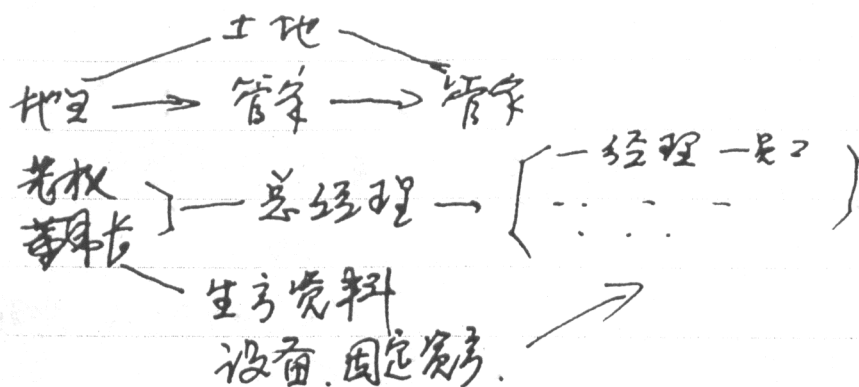 土地
地主 → 管家 → 管家
老板
董事长 ] — 总经理 → ( — 经理 — 员工 )
生产资料
设备.固定资产.